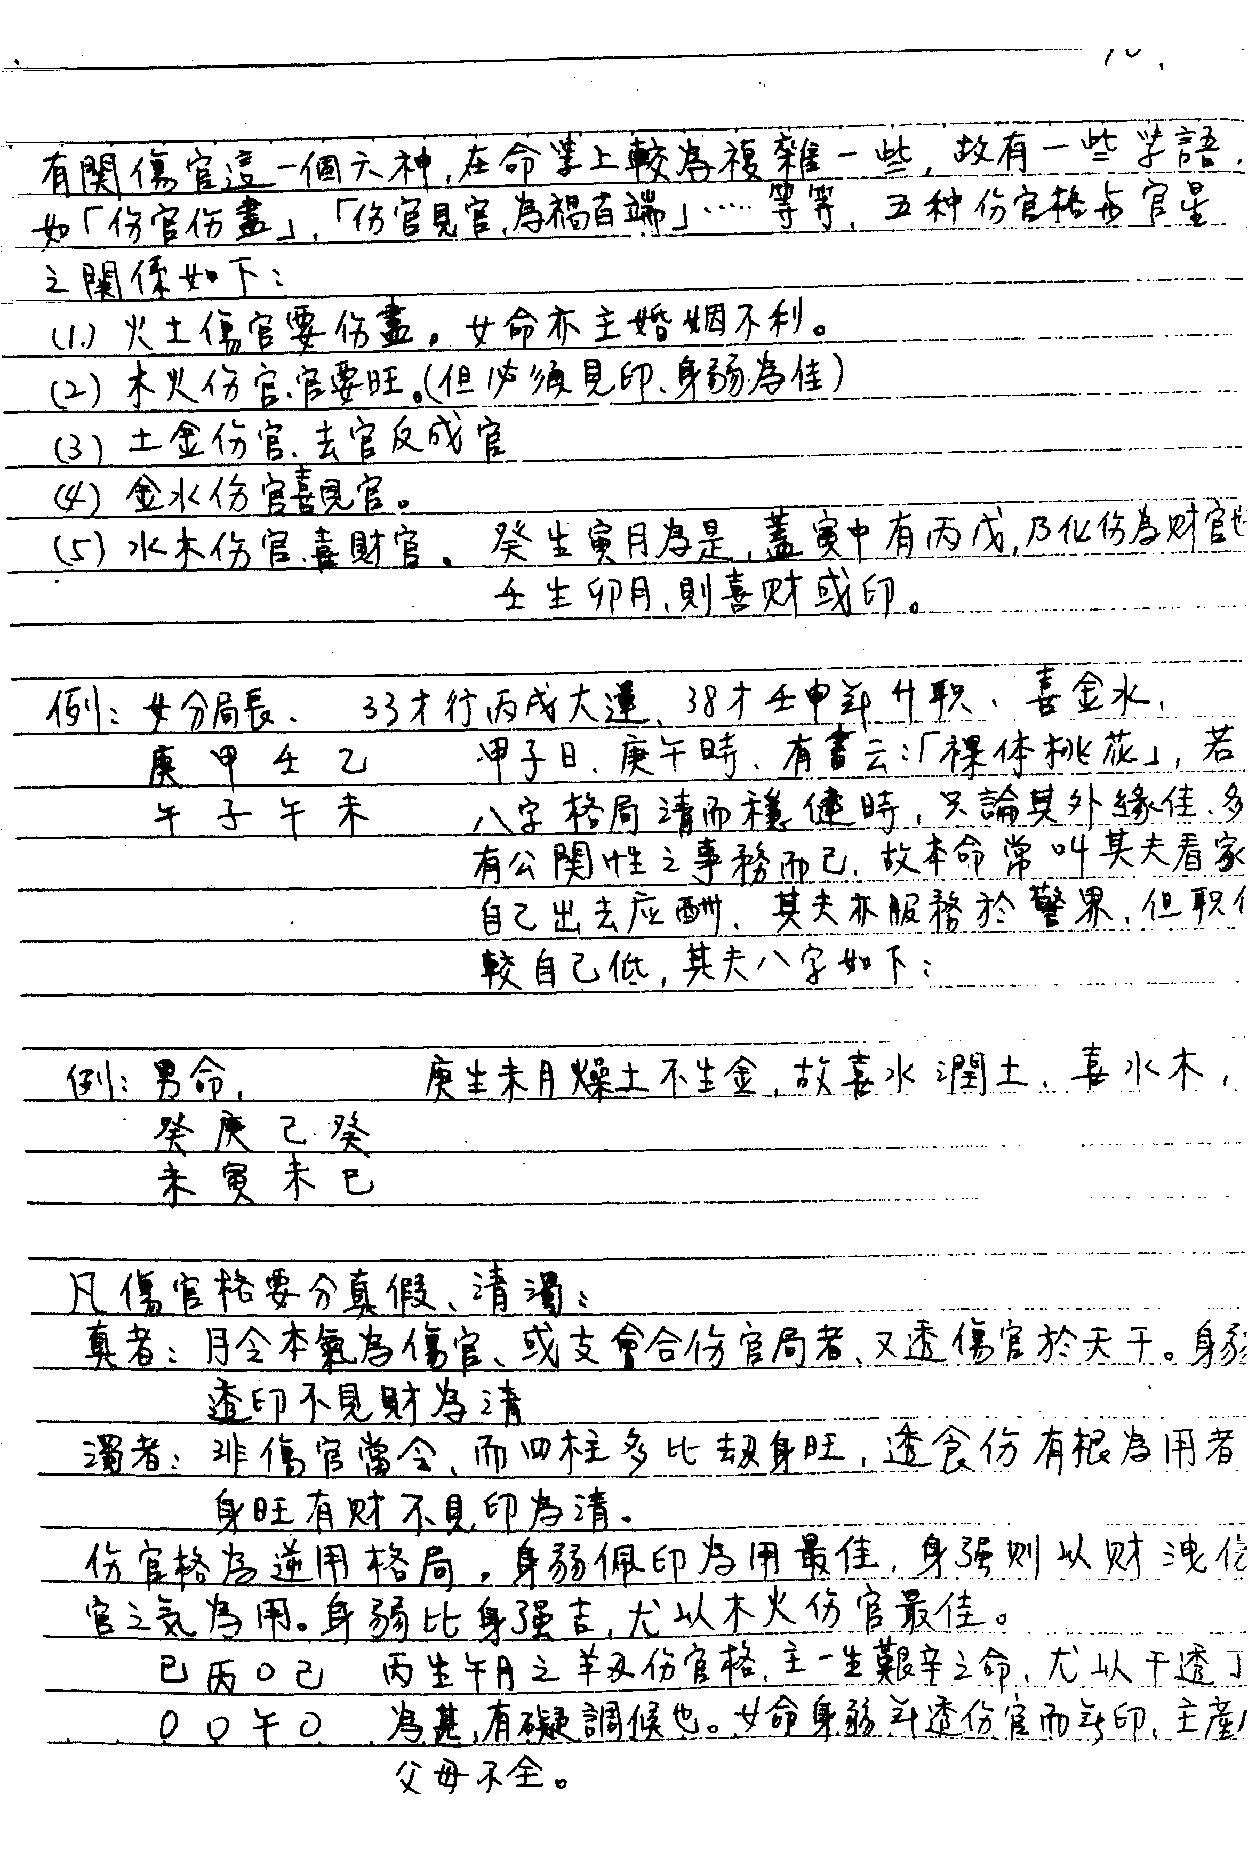 有関傷官這一個六神,在命学上較為複雜一些,故有一些学語,
如「伤官伤盡」,「伤官見官,為禍百端」……等等,五种伤官格与官星
之関係如下:
(1.) 火土傷官要伤盡。女命亦主婚姻不利。
(2) 木火伤官、官要旺。(但必須見印、身弱為佳)
(3) 土金伤官、去官反成官
(4) 金水伤官喜見官。
(5) 水木伤官、喜財官。 癸生寅月為是,蓋寅中有丙戊,乃化伤為財官也
壬生卯月,則喜财或印。
例: 女分局長、 33才行丙戌大運、38才壬申年升职、喜金水,
庚甲壬乙 甲子日、庚午時、有書云:「裸体桃花」,若
午子午未 八字格局清而穩健時,只論其外緣佳、多
有公関性之事務而已,故本命常叫其夫看家
自己出去应酬、其夫亦服務於警界,但职位
較自己低,其夫八字如下:
例: 男命, 庚生未月燥土不生金,故喜水潤土、喜水木,
癸庚己癸
未寅未巳
凡傷官格要分真假、清濁:
真者: 月令本氣為傷官、或支會合伤官局者、又透傷官於天干。身弱
透印不見財為清
濁者: 非傷官當令、而四柱多比劫身旺,透食伤有根為用者
身旺有财不見印為清。
伤官格為逆用格局,身弱佩印為用最佳,身强则以财洩伤
官之氣為用。身弱比身强吉,尤以木火伤官最佳。
己丙〇己 丙生午月之羊刃伤官格,主一生艱辛之命,尤以干透丁
〇〇午〇 為甚,有礙調候也。女命身弱并透伤官而無印,主產
父母不全。